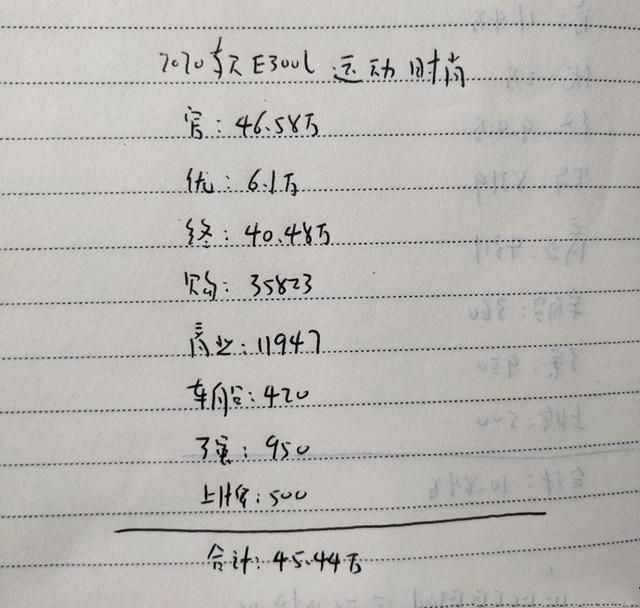 2020款E300L 运动时尚
官:46.58万
优:6.1万
终:40.48万
购:35823
商业:11947
车船:420
强:950
上牌:500
合计:45.44万